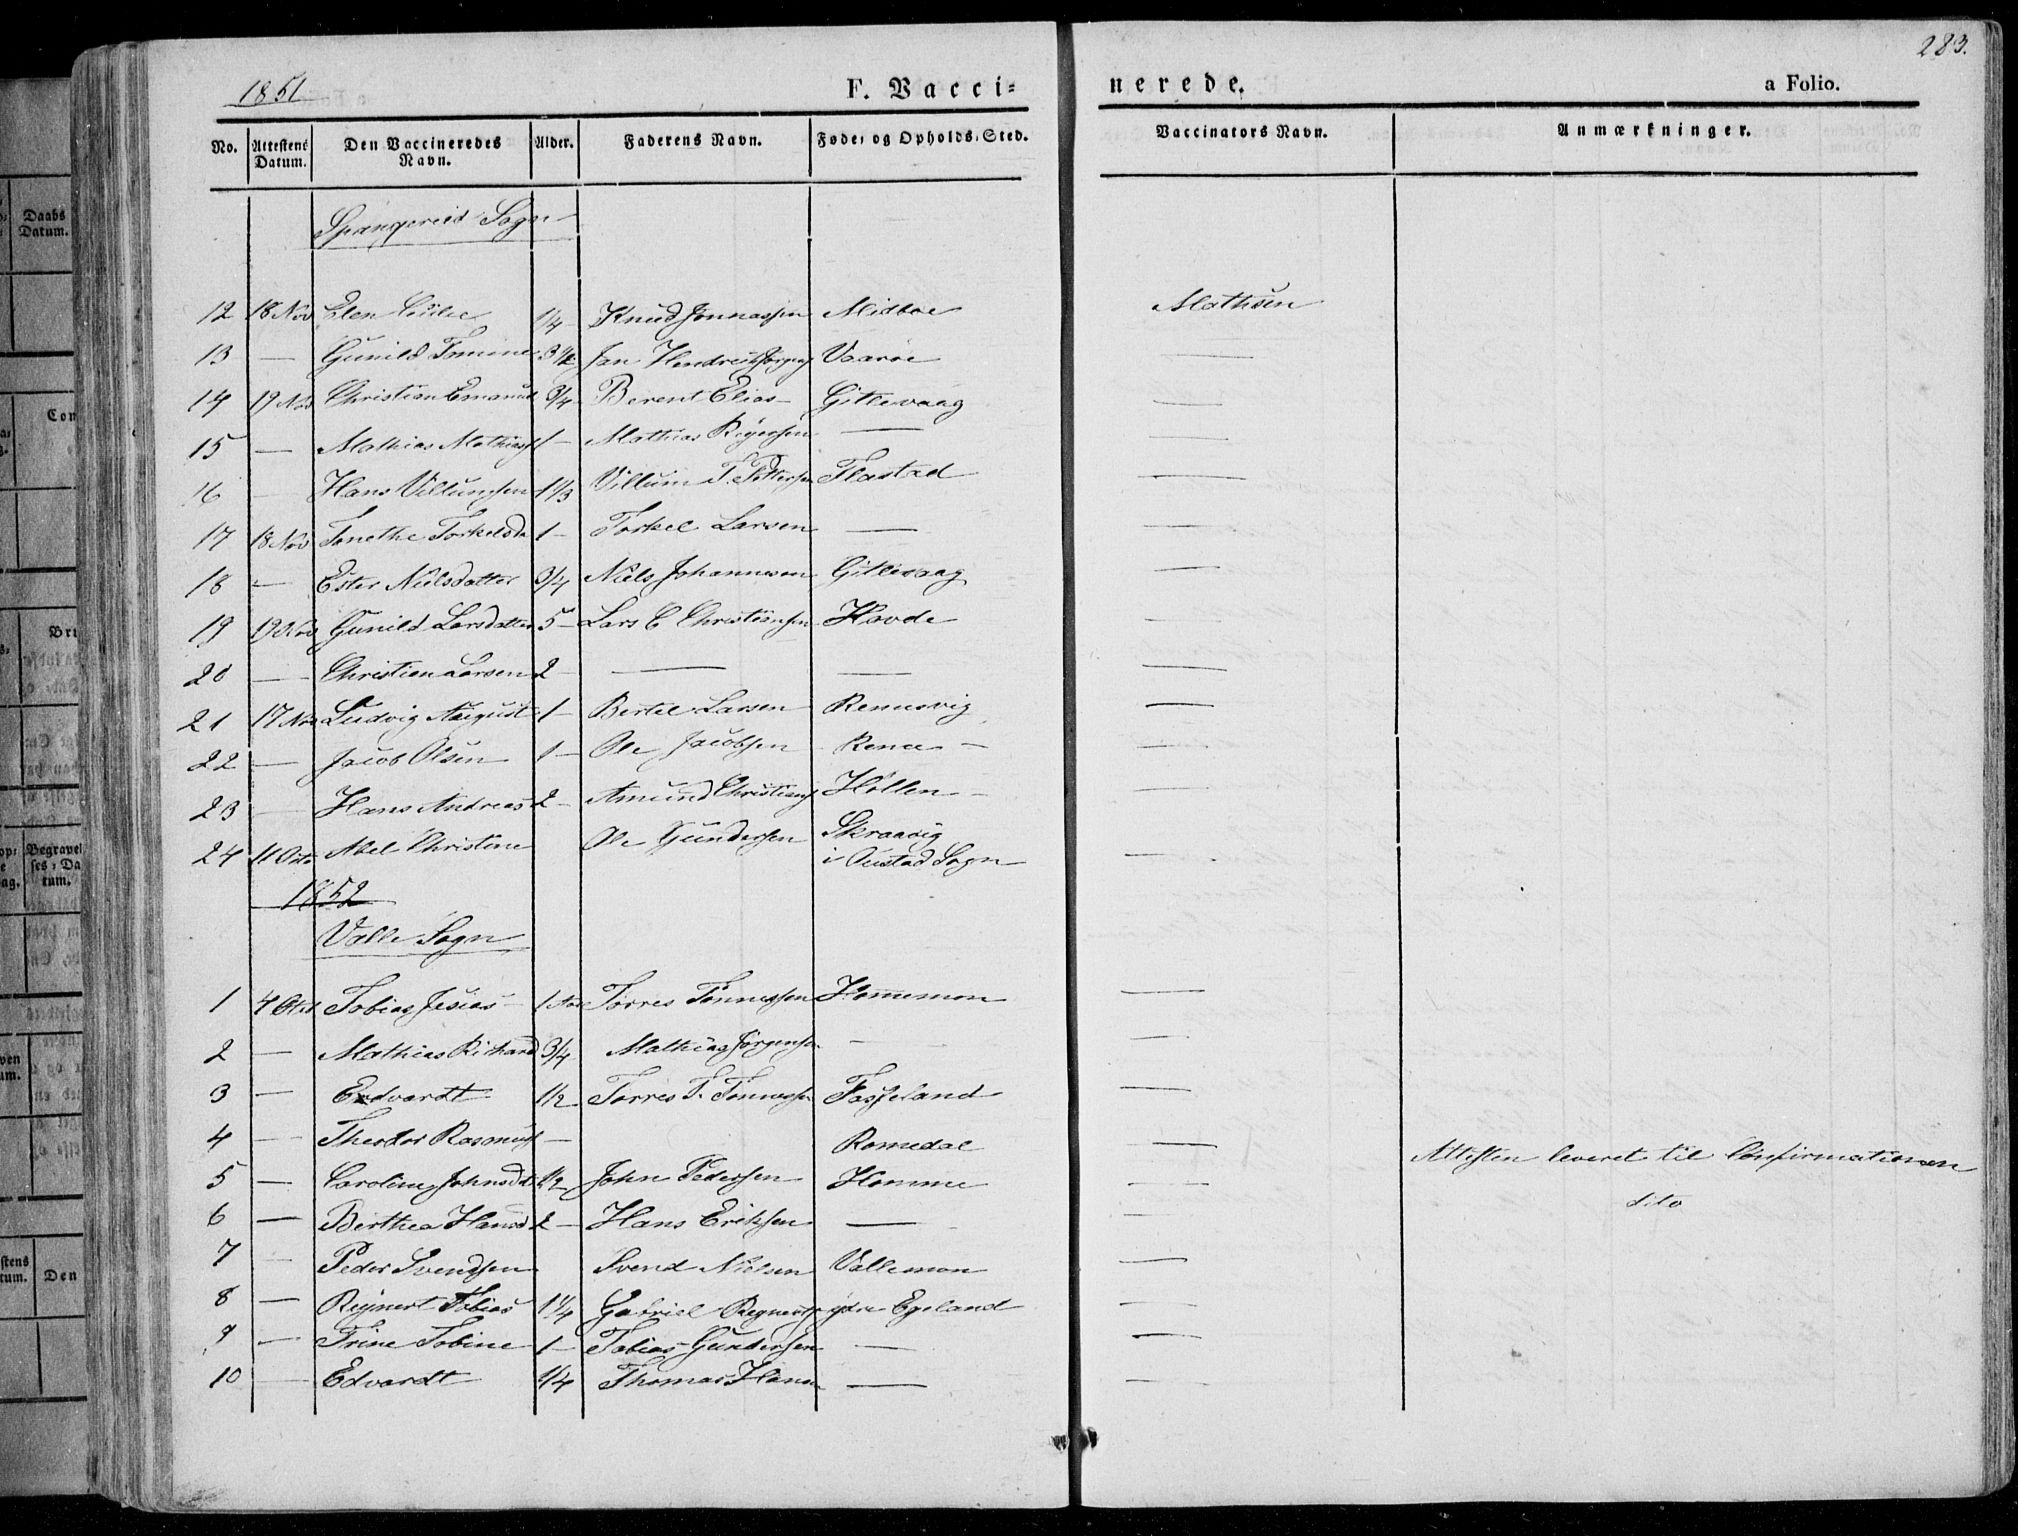 283.
1851
F. Vacci=
nerede.
a Folio.
No. Attestens Datum. Den Vaccineredes Navn. Alder. Faderens Navn. Føde- og Opholds-Sted. Vaccinators Navn. Anmærkninger.
Spangereid Sogn
12 18 Nov Elen 1/4 Knud Jonnassen Midbøe Mathsen
13 — Gunild 3 1/2 Jan Vaarøe —
14 19 Nov Christian Emanuel 3/4 Berent Elias Gitlevaag —
15 — Mathias Mathias 1 — Mathias — —
16 — Hans Villumsen 1 1/3 Villum T. Pettersen Flastad —
17 18 Nov Tonethe Torkelsda 1 — Torkel Larsen — —
18 — Ester Nielsdatter 3/4 Niels Johannesen Gitlevaag —
19 19 Nov Gunild Larsdatter 5 — Lars C Christiansen Hovde —
20 — Christian Larsen 2 — — — —
21 17 Nov Ludvig August 1 — Bertel Larsen Rennesvig —
22 — Jacob Olsen 1 — Ole Jacobsen —
23 — Hans Andreas 2 — Amund Christians Høllen —
24 11 Octo Abel Christine Ole Gundersen Skraavig
i Austad Sogn —
1852
Valle Sogn
1 4 Octo Tobias Jesias 1 Torres Tønnessen Hommemon —
2 — Mathias Richard 3/4 Mathias Jørgensen — —
3 — Edvardt 1/2 Torres T. Tønnessen Fasseland —
4 — Theodor Rasmus — Romedal —
5 — Caroline Johnsdt 1/2 John Pedersen Homme — Attesten leveret til Confirmationen
6 — Berthea Hansd 2 — Hans Eriksen — — dito
7 — Peder Svendsen Svend Nielsen Vallemon —
8 — Regnert Tobias 1 1/4 Gabriel Regnerts ydre Egeland —
9 — Trine Tobine 1 — Tobias Gundersen — —
10 — Edvardt 1/4 Thomas Hans — —
Daabs
Datum.
Begravel
ses-Da
tum.
Den